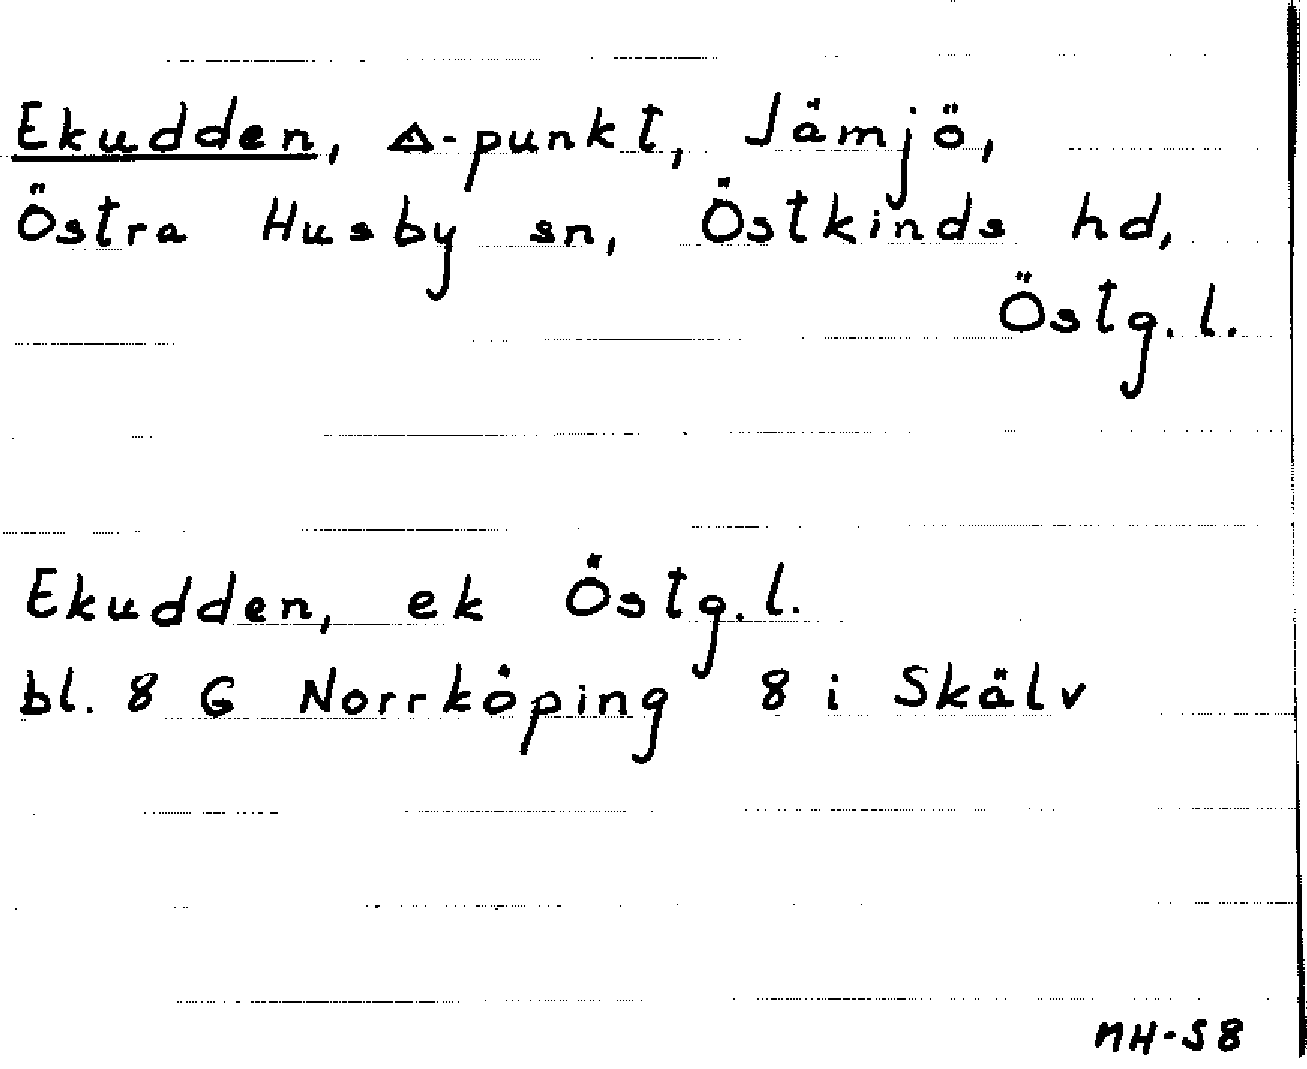 Ekudden, △-punkt, Jämjö,
Östra Husby sn, Östkinds hd,
Östg. l.
Ekudden, ek Östg. l.
bl. 8 G Norrköping 8 i Skälv
MH-58